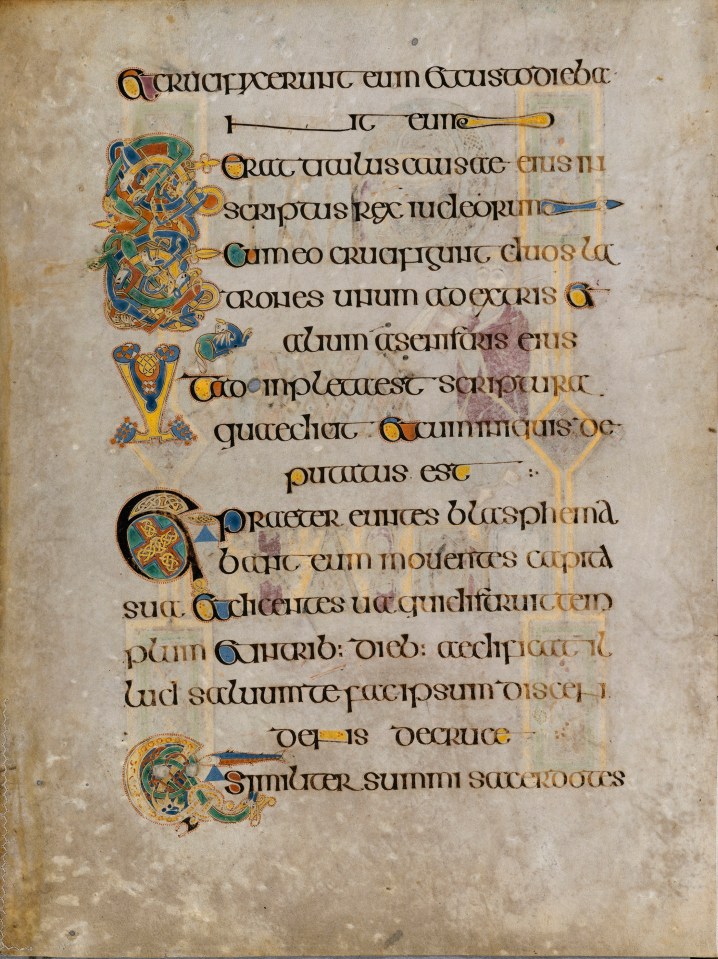 & crucifixerunt eum & custodieba
nt eum
Et erat titulus causae eius in
scriptus rex iudeorum
Et cum eo crucifigunt duos la
trones unum ad extris &
alium a senistris eius
Ut adinpleta est scriptura
quae dicit & cum iniquis de
putatus est
& praeter euntes blasphema
bant eum moventes capita
sua & dicentes ua qui distruit tem
plum & in trib: dieb: aedificat il
lud saluum te fac ipsum discen
dens de cruce
& similiter summi sacerdotes